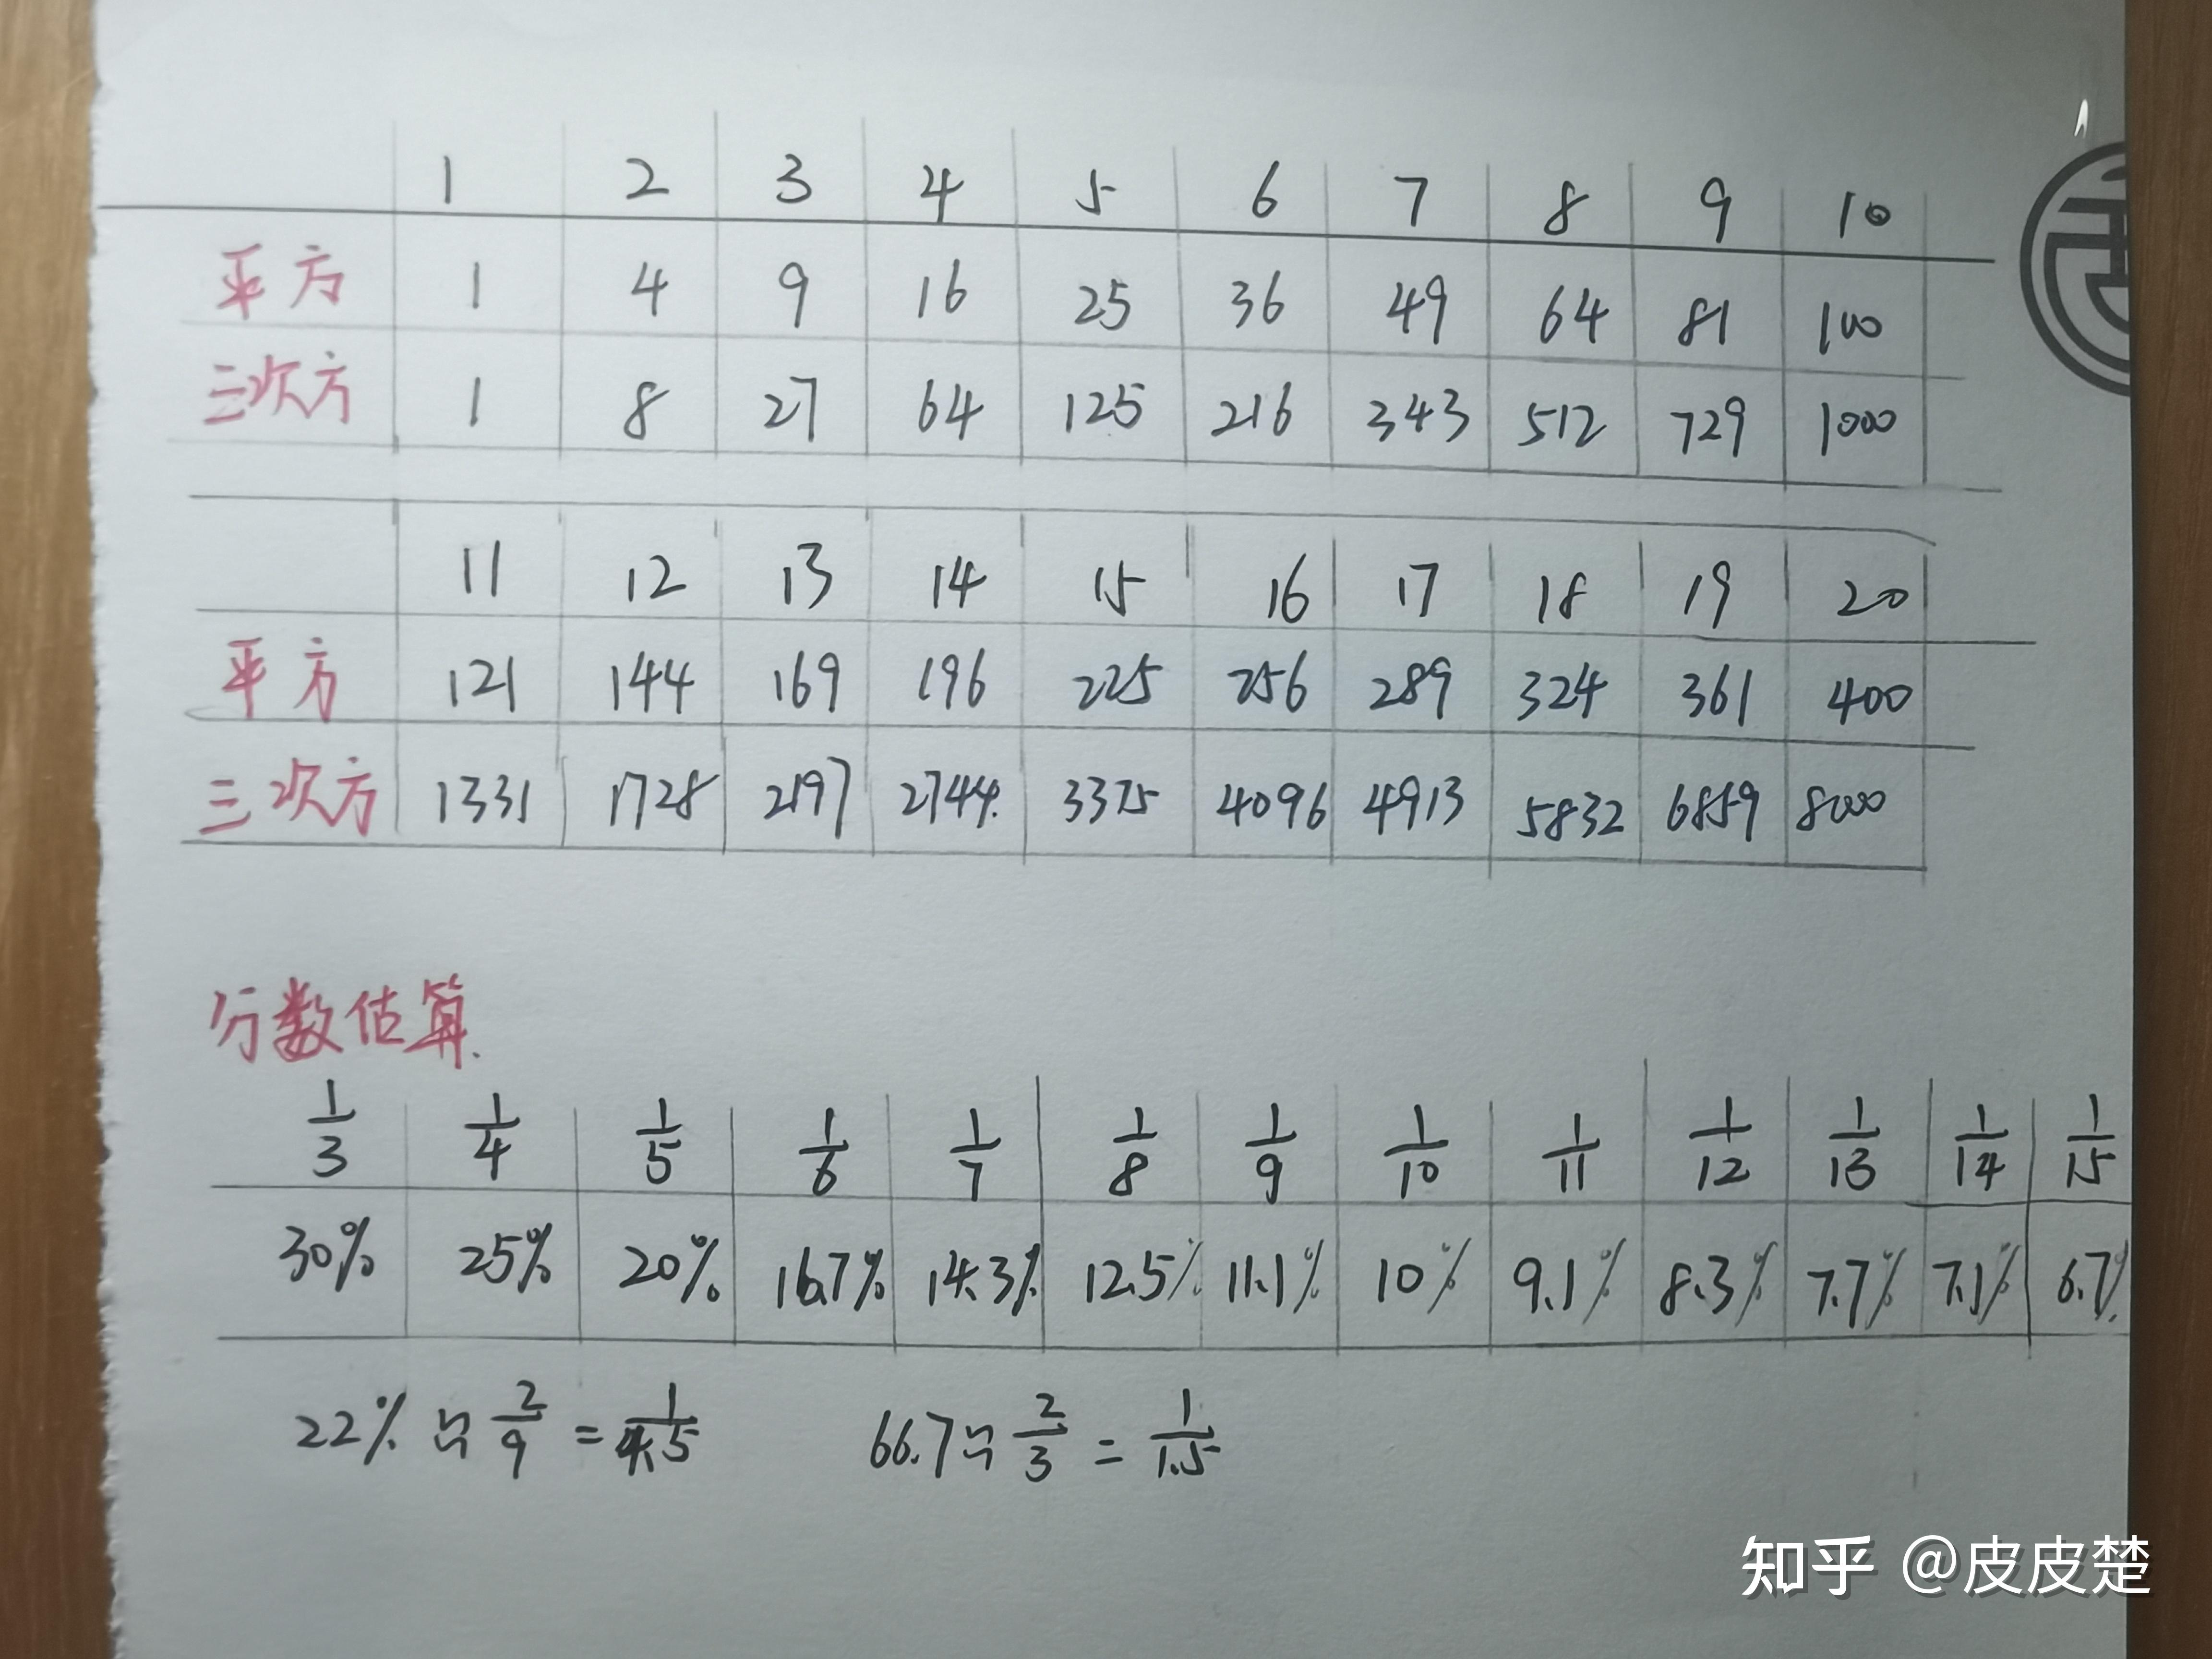 1 2 3 4 5 6 7 8 9 10
平方 1 4 9 16 25 36 49 64 81 100
三次方 1 8 27 64 125 216 343 512 729 1000
11 12 13 14 15 16 17 18 19 20
平方 121 144 169 196 225 256 289 324 361 400
三次方 1331 1728 2197 2744. 3375 4096 4913 5832 6859 8000
分数估算.
1/3 1/4 1/5 1/6 1/7 1/8 1/9 1/10 1/11 1/12 1/13 1/14 1/15
30% 25% 20% 16.7% 14.3% 12.5% 11.1% 10% 9.1% 8.3% 7.7% 7.1% 6.7%
22% ≈ 2/9 = 1/4.5 66.7 ≈ 2/3 = 1/1.5
知乎 @皮皮楚